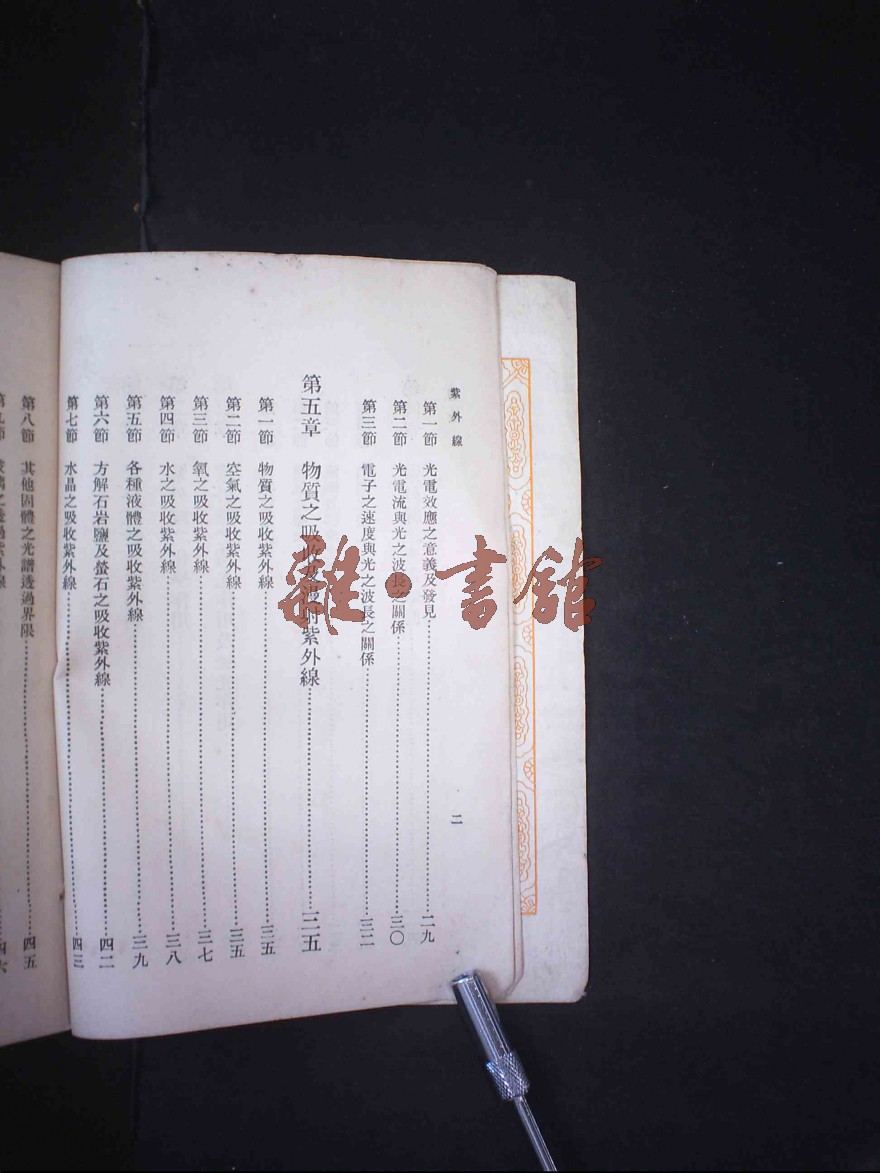 紫外線
二
第一節 光電效應之意義及發見 二九
第二節 光電流與光之波長之關係 三〇
第三節 電子之速度與光之波長之關係 三二
第五章 物質之吸收及漫射紫外線 三五
第一節 物質之吸收紫外線 三五
第二節 空氣之吸收紫外線 三五
第三節 氧之吸收紫外線 三七
第四節 水之吸收紫外線 三八
第五節 各種液體之吸收紫外線 三九
第六節 方解石岩鹽及螢石之吸收紫外線 四二
第七節 水晶之吸收紫外線 四三
第八節 其他固體之光譜透過界限 四五
雜·書館